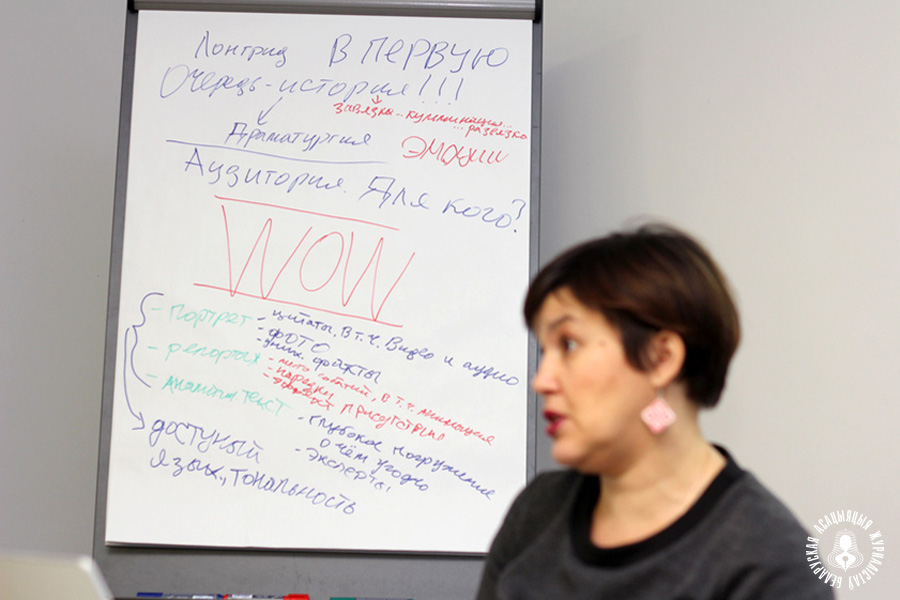 Лонгрид В первую
Очередь - история!!!
завязка... кульминация...
... развязка
Драматургия
эмоции
Аудитория. Для кого?
WOW
- портрет
- цитаты, в т.ч. видео и аудио
- фото
- уник. факты
- репортаж
- место событий, в т.ч. анимация
- нарезки
- эффект присутствия
- аналит. текст
- глубокое погружение
о чём угодно
- эксперты
доступный
язык, тональность
БЕЛАРУСКАЯ АСАЦЫЯЦЫЯ ЖУРНАЛІСТАЎ